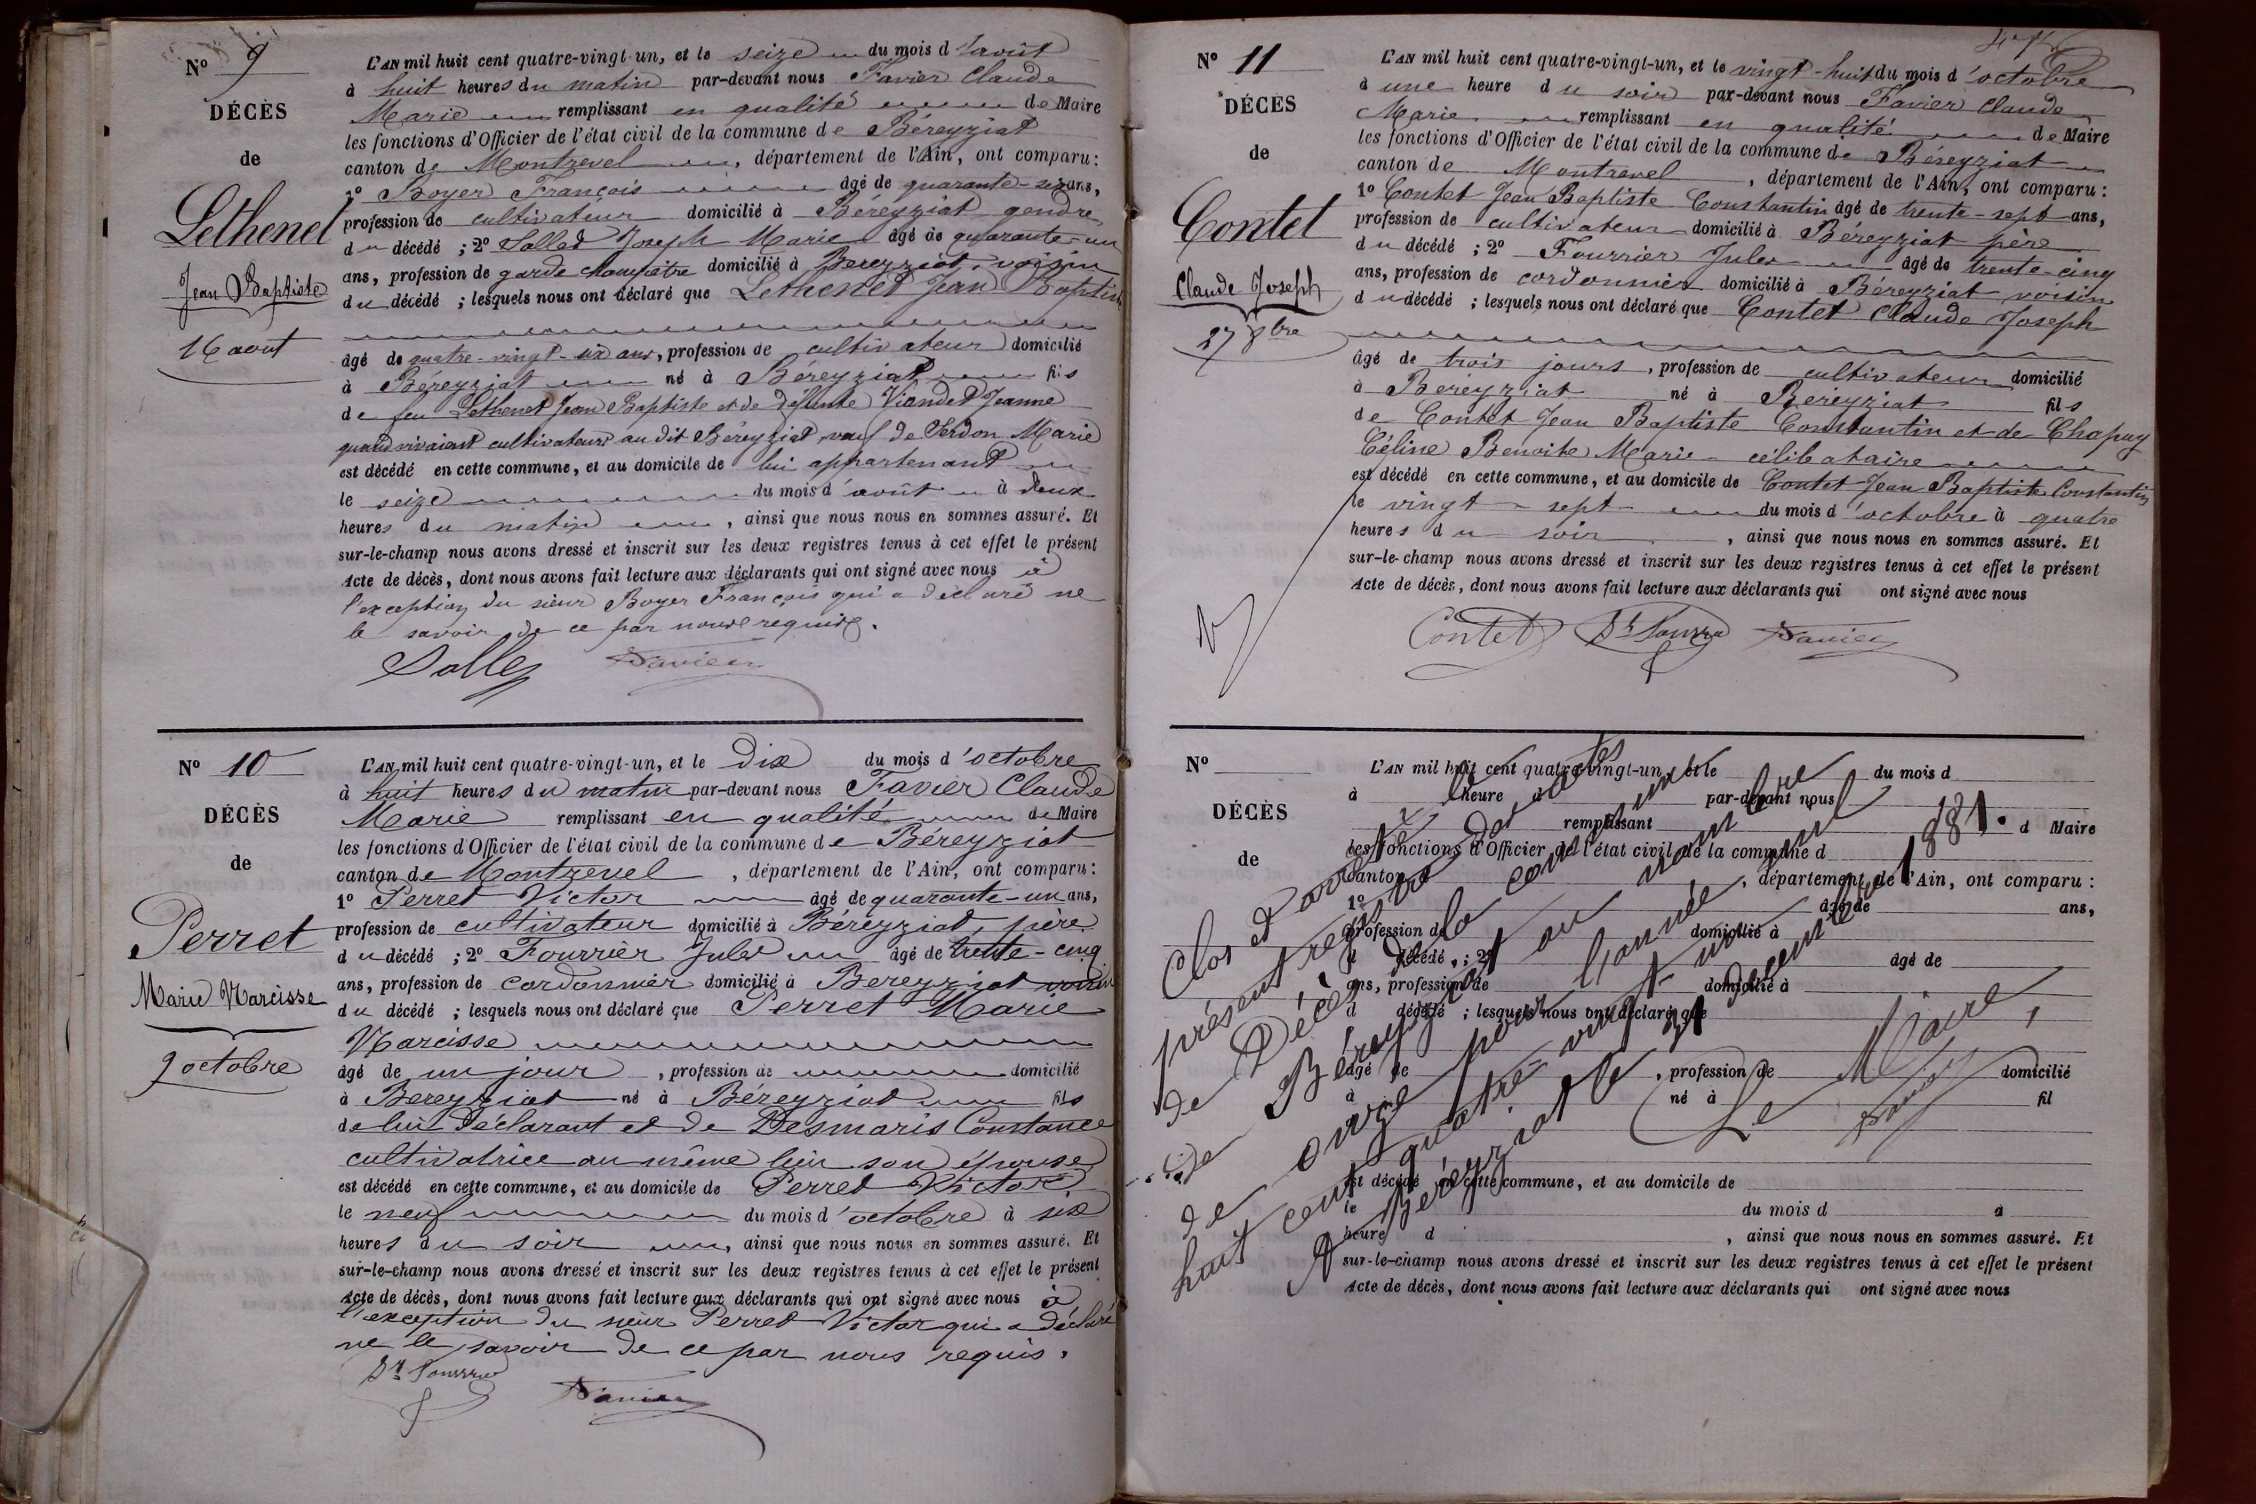 Nº 9
DÉCÈS
de
Lethenet
Jean Baptiste
16 aout
L'AN mil huit cent quatre-vingt-un, et le seize du mois d'août
à huit heures du matin par-devant nous Favier Claude
Marie remplissant en qualité de Maire
les fonctions d'Officier de l'état civil de la commune de Béreyziat
canton de Montrevel, département de l'Ain, ont comparu:
1º Boyer François âgé de quarante-six ans,
profession de cultivateur domicilié à Béreyziat gendre
du décédé ; 2º Salles Joseph Marie âgé de quarante-un
ans, profession de garde champêtre domicilié à Béreyziat, voisin
du décédé ; lesquels nous ont déclaré que Lethenet Jean Baptiste
âgé de quatre-vingt-six ans, profession de cultivateur domicilié
à Béreyziat né à Béreyziat fils
de feu Lethenet Jean Baptiste et de défunte Viandet Jeanne
quand vivaient cultivateurs au dit Béreyziat, veuf de Verdon Marie
est décédé en cette commune, et au domicile de lui appartenant
le seize du mois d'août à deux
heures du matin, ainsi que nous nous en sommes assuré. Et
sur-le-champ nous avons dressé et inscrit sur les deux registres tenus à cet effet le présent
Acte de décès, dont nous avons fait lecture aux déclarants qui ont signé avec nous à
l'exception du sieur Boyer François qui a déclaré ne
le savoir de ce par nous requis.
Salles Favier
Nº 10
DÉCÈS
de
Perret
Marie Narcisse
9 octobre
L'AN mil huit cent quatre-vingt-un, et le dix du mois d'octobre
à huit heures du matin par-devant nous Favier Claude
Marie remplissant en qualité de Maire
les fonctions d'Officier de l'état civil de la commune de Béreyziat
canton de Montrevel, département de l'Ain, ont comparu:
1º Perret Victor âgé de quarante-un ans,
profession de cultivateur domicilié à Béreyziat, père
du décédé ; 2º Fourrier Jules âgé de trente-cinq
ans, profession de cordonnier domicilié à Béreyziat voisin
du décédé ; lesquels nous ont déclaré que Perret Marie
Narcisse
âgé de un jour, profession de domicilié
à Bereyziat né à Béreyziat fils
de lui déclarant et de Desmaris Constance
cultivatrice au même lieu son épouse
est décédé en cette commune, et au domicile de Perret Victor
le neuf du mois d'octobre à six
heures du soir, ainsi que nous nous en sommes assuré. Et
sur-le-champ nous avons dressé et inscrit sur les deux registres tenus à cet effet le présent
Acte de décès, dont nous avons fait lecture aux déclarants qui ont signé avec nous à
l'exception du sieur Perret Victor qui a déclaré
ne le savoir de ce par nous requis.
Favier
Nº 11
DÉCÈS
de
Contet
Claude Joseph
27 8bre
L'AN mil huit cent quatre-vingt-un, et le vingt-huit du mois d'octobre
à une heure du soir par-devant nous Favier Claude
Marie remplissant en qualité de Maire
les fonctions d'Officier de l'état civil de la commune de Béreyziat
canton de Montrevel, département de l'Ain, ont comparu:
1º Contet Jean Baptiste Constantin âgé de trente-sept ans,
profession de cultivateur domicilié à Béreyziat père
du décédé ; 2º Fourrier Jules âgé de trente-cinq
ans, profession de cordonnier domicilié à Béreyziat voisin
du décédé ; lesquels nous ont déclaré que Contet Claude Joseph
âgé de trois jours, profession de cultivateur domicilié
à Bereyziat né à Bereyziat fils
de Contet Jean Baptiste Constantin et de Chapuy
Céline Benoite Marie célibataire
est décédé en cette commune, et au domicile de Contet Jean Baptiste Constantin
le vingt-sept du mois d'octobre à quatre
heures du soir, ainsi que nous nous en sommes assuré. Et
sur-le-champ nous avons dressé et inscrit sur les deux registres tenus à cet effet le présent
Acte de décès, dont nous avons fait lecture aux déclarants qui ont signé avec nous
Contet Favier
Nº
DÉCÈS
de
L'AN mil huit cent quatre-vingt-un, et le du mois d
à heure d par-devant nous
remplissant d Maire
les fonctions d'Officier de l'état civil de la commune d
canton d, département de l'Ain, ont comparu:
1º âgé de ans,
profession de domicilié à
d décédé ; 2º âgé de
ans, profession de domicilié à
d décédé ; lesquels nous ont déclaré que
âgé de, profession de domicilié
à né à fil
est décédé en cette commune, et au domicile de
le du mois d à
heure d, ainsi que nous nous en sommes assuré. Et
sur-le-champ nous avons dressé et inscrit sur les deux registres tenus à cet effet le présent
Acte de décès, dont nous avons fait lecture aux déclarants qui ont signé avec nous
Clos et arrêté le
présent registre des actes
de Décès de la commune
de Béreyziat au nombre
de onze pour l'année mil
huit cent quatre-vingt-un
A Béreyziat le 31 décembre 1881.
Le Maire,
Favier